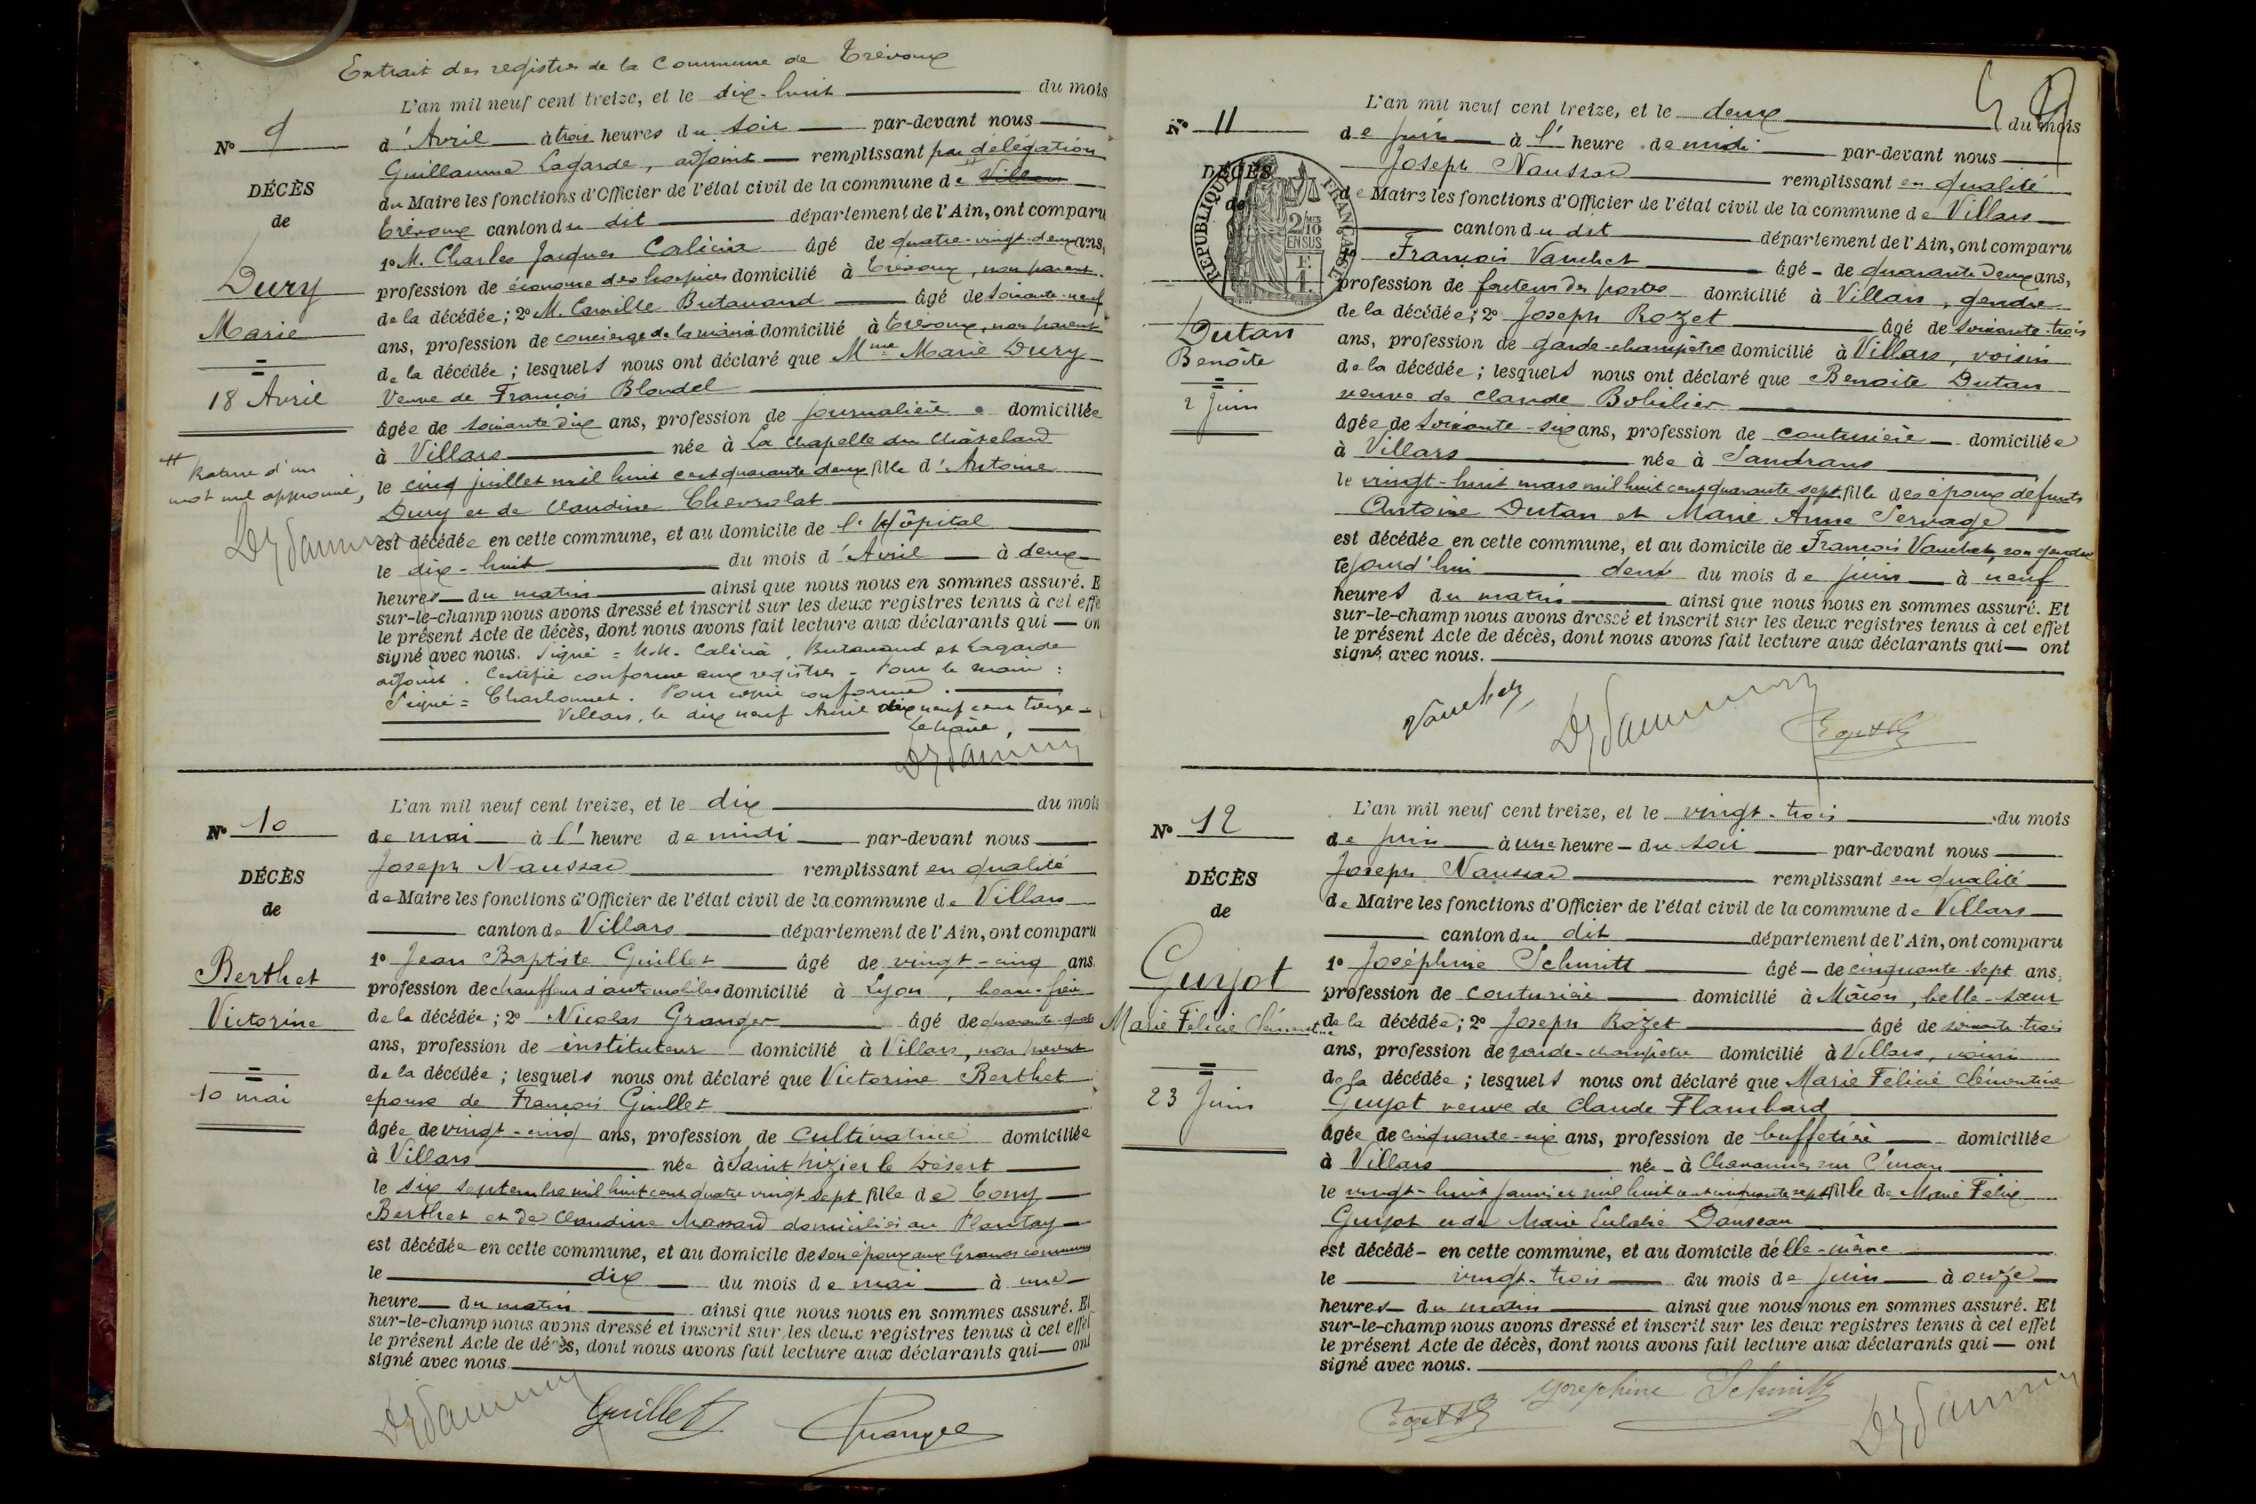 Extrait des registres de la Commune de Trévoux
L'an mil neuf cent treize, et le dix-huit du mois
d'Avril à trois heures du soir par-devant nous
Guillaume Lagarde, adjoint remplissant par délégation
du Maire les fonctions d'Officier de l'état civil de la commune de
Trévoux canton du dit département de l'Ain, ont comparu
1º M. Charles Jacques Calicia âgé de quatre-vingt-deux ans,
profession de économe des hospices domicilié à Trévoux, non parent
de la décédée; 2º M. Camille Butavand âgé de soixante-neuf
ans, profession de concierge de la mairie domicilié à Trévoux, non parent
de la décédée; lesquels nous ont déclaré que Mme Marie Dury
Veuve de François Blondel
âgée de soixante dix ans, profession de journalière domiciliée
à Villars née à La Chapelle du Châtelard
le cinq juillet mil huit cent quarante deux fille d'Antoine
Dury et de Claudine Chevrolat
est décédée en cette commune, et au domicile de l'Hôpital
le dix-huit du mois d'Avril à deux
heures du matin ainsi que nous nous en sommes assuré. E
sur-le-champ nous avons dressé et inscrit sur les deux registres tenus à cet effe
le présent Acte de décès, dont nous avons fait lecture aux déclarants qui on
signé avec nous. Signé = M.M. Calicia, Butavand et Lagarde
adjoint. Certifié conforme aux registres - Pour le maire :
Signé = Charbonnet. Pour copie conforme.
Villars, le dix neuf Avril dix neuf cent treize
Le Maire,
Nº 9
DÉCÈS
de
Dury
Marie
18 Avril
Rature d'un
mot nul approuvé,
Nº 10
DÉCÈS
de
Berthet
Victorine
10 mai
L'an mil neuf cent treize, et le dix du mois
de mai à l'heure de midi par-devant nous
Joseph Naussac remplissant en qualité
de Maire les fonctions d'Officier de l'état civil de la commune de Villars
canton de Villars département de l'Ain, ont comparu
1º Jean Baptiste Guillet âgé de vingt-cinq ans
profession de chauffeur d'automobiles domicilié à Lyon, beau-frère
de la décédée; 2º Nicolas Granger âgé de quarante-quatre
ans, profession de instituteur domicilié à Villars, non parent
de la décédée; lesquels nous ont déclaré que Victorine Berthet
épouse de François Guillet
âgée de vingt-cinq ans, profession de cultivatrice domiciliée
à Villars née à Saint Nizier le Désert
le six septembre mil huit cent quatre vingt sept fille de Tony
Berthet et de Claudine Massard domiciliés au Plantay
est décédée en cette commune, et au domicile de son époux aux Grands communs
le dix du mois de mai à une
heure du matin ainsi que nous nous en sommes assuré. Et
sur-le-champ nous avons dressé et inscrit sur les deux registres tenus à cet effet
le présent Acte de décès, dont nous avons fait lecture aux déclarants qui ont
signé avec nous.
Guillet
Granger
Nº 11
DÉCÈS
de
RÉPUBLIQUE FRANÇAISE
2/10 EN SUS
F. 1.
Dutan
Benoîte
2 Juin
L'an mil neuf cent treize, et le deux du mois
de Juin à l'heure de midi par-devant nous
Joseph Naussac remplissant en qualité
de Maire les fonctions d'Officier de l'état civil de la commune de Villars
canton du dit département de l'Ain, ont comparu
1º François Vauchet âgé de quarante deux ans,
profession de facteur des postes domicilié à Villars, gendre
de la décédée; 2º Joseph Rozet âgé de soixante-trois
ans, profession de garde-champêtre domicilié à Villars, voisin
de la décédée; lesquels nous ont déclaré que Benoite Dutan
veuve de Claude Bobilier
âgée de soixante-six ans, profession de couturière domiciliée
à Villars née à Sandrans
le vingt-huit mars mil huit cent quarante sept fille des époux défunts
Antoine Dutan et Marie Anne Servage
est décédée en cette commune, et au domicile de François Vauchet, son gendre
le jourd'hui deux du mois de juin à neuf
heures du matin ainsi que nous nous en sommes assuré. Et
sur-le-champ nous avons dressé et inscrit sur les deux registres tenus à cet effet
le présent Acte de décès, dont nous avons fait lecture aux déclarants qui ont
signé avec nous.
Vauchet
Nº 12
DÉCÈS
de
Guyot
Marie Félicie Clémentine
23 Juin
L'an mil neuf cent treize, et le vingt-trois du mois
de juin à une heure du soir par-devant nous
Joseph Naussac remplissant en qualité
de Maire les fonctions d'Officier de l'état civil de la commune de Villars
canton du dit département de l'Ain, ont comparu
1º Joséphine Schmitt âgé de cinquante-sept ans,
profession de couturière domicilié à Mâcon, belle-sœur
de la décédée; 2º Joseph Rozet âgé de soixante-trois
ans, profession de garde-champêtre domicilié à Villars, voisin
de la décédée; lesquels nous ont déclaré que Marie Félicie Clémentine
Guyot veuve de Claude Flambard
âgée de cinquante-six ans, profession de buffetière domiciliée
à Villars née à Chavannes sur Suran
le vingt-huit janvier mil huit cent cinquante sept fille de Marie Félix
Guyot et de Marie Eulalie Danseau
est décédé en cette commune, et au domicile d'elle-même
le vingt-trois du mois de juin à onze
heures du matin ainsi que nous nous en sommes assuré. Et
sur-le-champ nous avons dressé et inscrit sur les deux registres tenus à cet effet
le présent Acte de décès, dont nous avons fait lecture aux déclarants qui ont
signé avec nous.
Josephine Schmitt